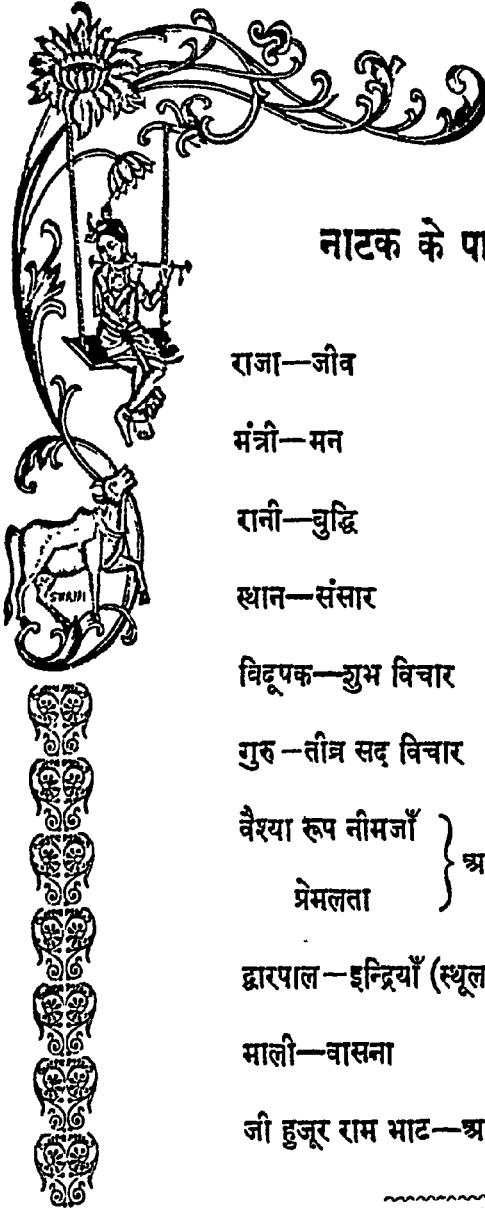 नाटक के पा
राजा—जीव
मंत्री—मन
रानी—बुद्धि
स्थान—संसार
विदूषक—शुभ विचार
गुरु—तीव्र सद विचार
वैश्या रूप नीमजाँ
प्रेमलता
द्वारपाल—इन्द्रियाँ (स्थूल
माली—वासना
जी हुजूर राम भाट—अ